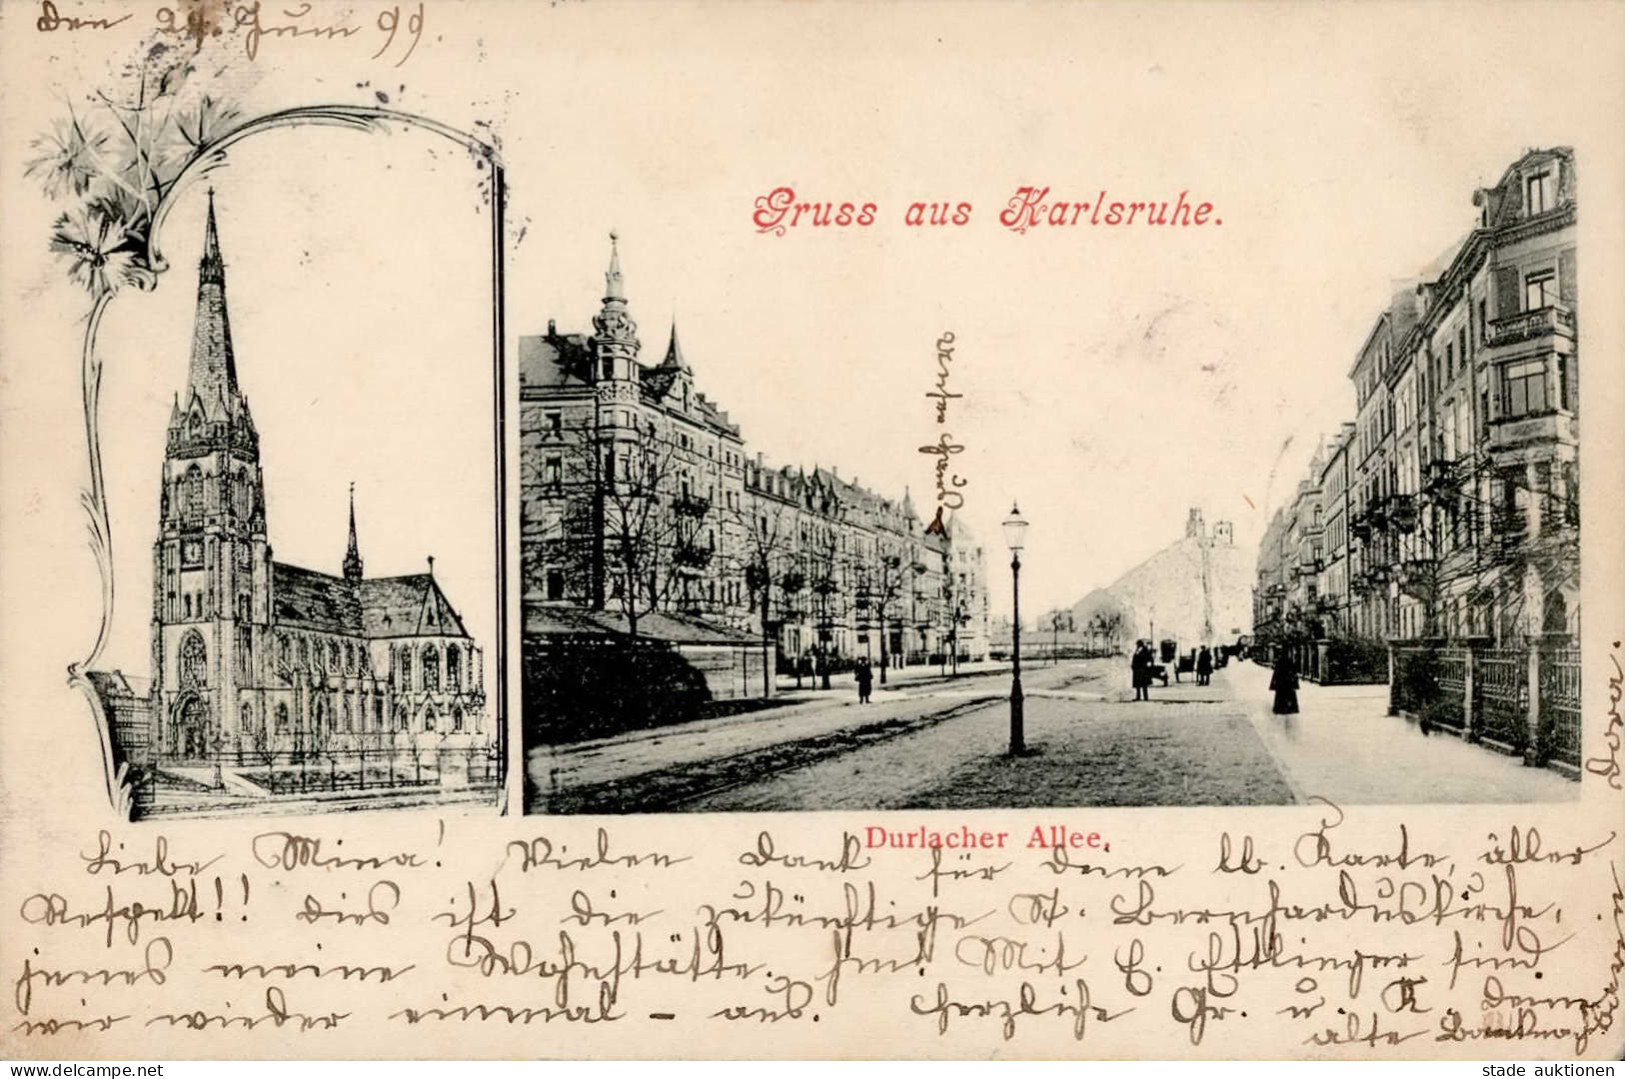 den 24. Juni 99.
Gruss aus Karlsruhe.
Unser Haus
Durlacher Allee.
Liebe Mina! Vielen Dank für Deine lb. Karte, äller
Respekt!! Dies ist die zukünftige St. Bernharduskirche,
jenes meine Wohnstätte. Hm! Mit E. Ettlinger sind
wir wieder einmal – aus. Herzliche Gr. u. K. Deine
alte
Dora.
stade auktionen